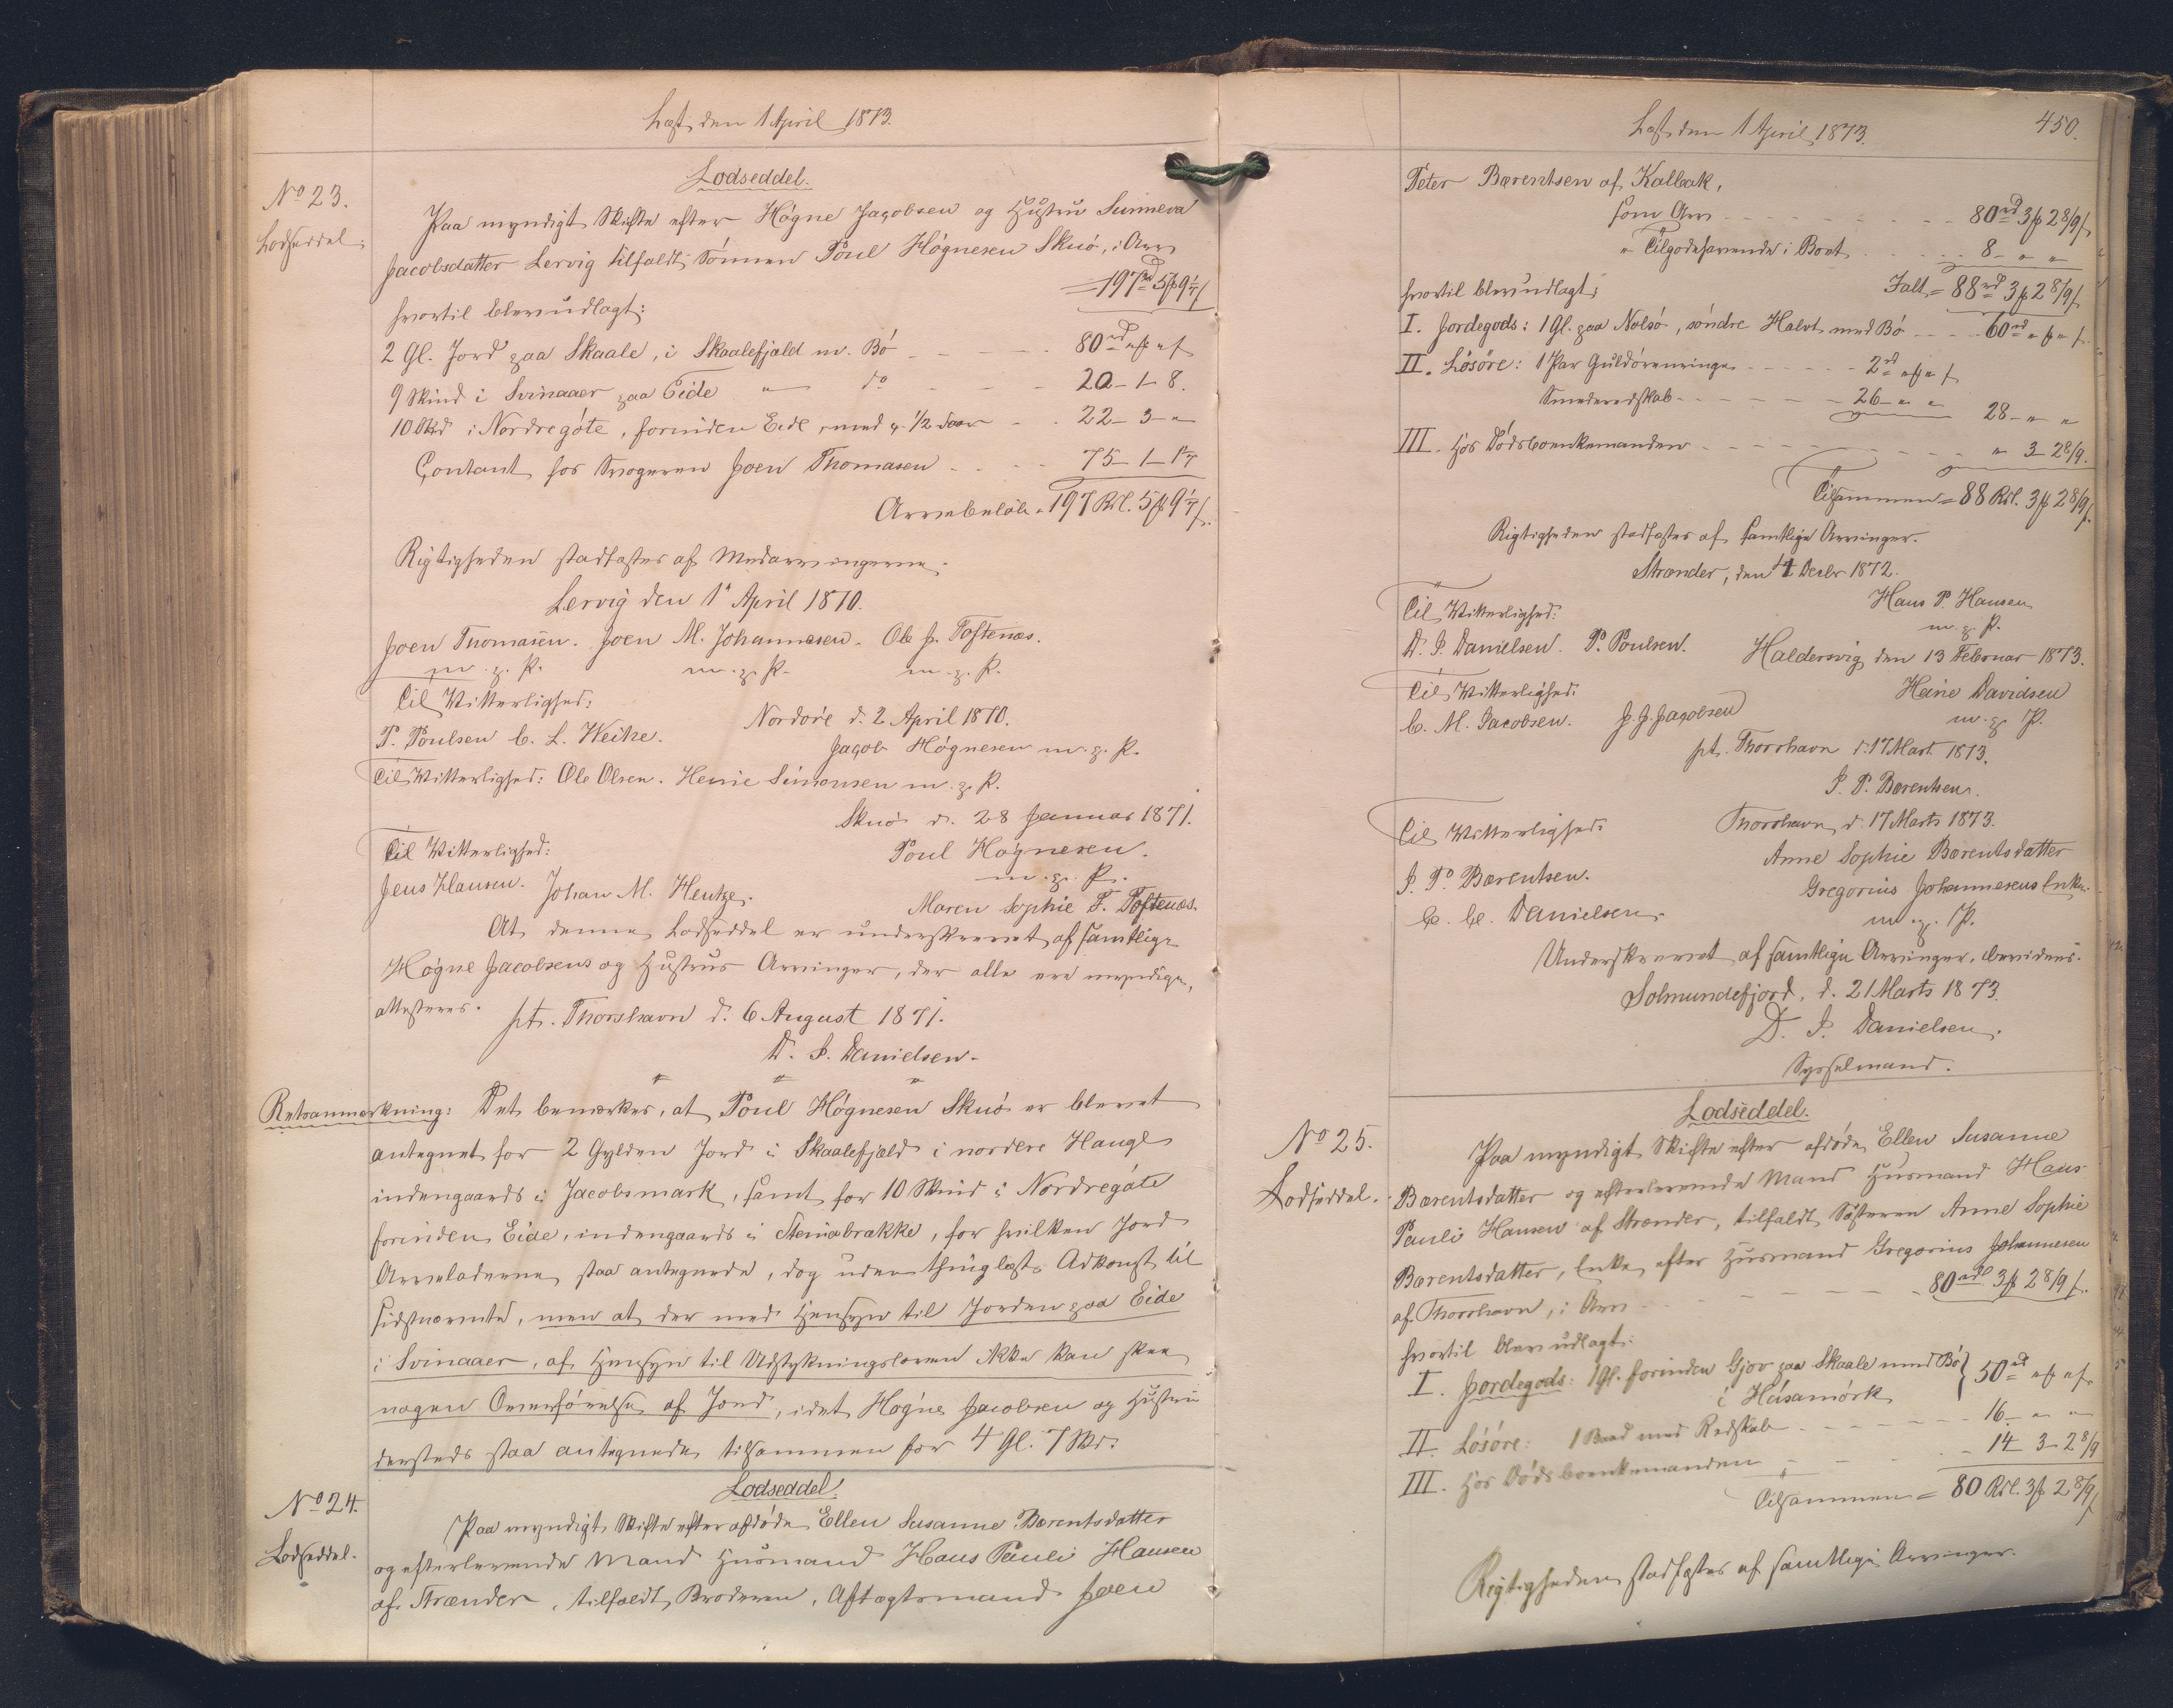 Læst den 1 April 1873.
No 23.
Lodseddel.
Lodseddel.
Paa myndigt Skifte efter Högne Jacobsen og Hustru Sunneva
Jacobsdatter Lervig tilfaldt Sønnen Poul Högnesen Skuö, i Arv
197rd 5ß 9 1/7
hvortil blev udlagt:
2 Gl. Jord paa Skaale, i Skaalefjald m. Bö - - - 80rd „ß „f
9 Skind i Svinaaer paa Eide „ do - - - 20 - 1 - 8.
10 Skd i Nordregöte, forinden Eide, med 4 1/2 - - 22 - 3 - „
Contant hos Svogeren Joen Thomasen - - - 75 - 1 - 1 1/7
Arvebeløb = 197 Rdl. 5ß 9 1/7 f.
Rigtigheden stadfæstes af Medarvingerne.
Lervig den 1 April 1870.
Joen Thomasen. Joen M. Johannesen. Ole J. Toftenæs.
m. p. P. m. p. P. m. p. P.
Til Vitterlighed:
P. Poulsen C. L. Weihe. Nordöre d. 2 April 1870.
Jacob Högnesen m. p. P.
Til Vitterlighed: Ole Olsen. Henie Simonsen m. p. P.
Skuö d. 28 Januar 1871.
Til Vitterlighed: Poul Högnesen.
m. p. P.
Jens Hansen. Johan M. Hentze. Maren Sophie F. Toftenæs.
At denne Lodseddel er underskrevet af samtlige
Högne Jacobsens og Hustrus Arvinger, der alle ere myndige,
attesteres. pt. Thorshavn d. 6 August 1871.
D. J. Danielsen.
Retsanmærkning: Det bemærkes, at Poul Högnesen Skuö er blevet
antegnet for 2 Gylden Jord i Skaalefjæld i nordere Hauge
indengaards i Jacobsmark, samt for 10 Skind i Nordregöte
forinden Eide, indengaards i Steinabrække, for hvilken Jord
Arveladerne staa antegnede, dog uden thinglæst Adkomst til
sidstnævnte, men at der med Hensyn til Jorden paa Eide
i Svinaaer, af Hensyn til Udstykningsloven ikke kan skee
nogen Overførelse af Jord, idet Högne Jacobsen og Hustru
dersteds staa antegnede tilsammen for 4 Gl. 7 Skd.
No 24.
Lodseddel.
Lodseddel.
Paa myndigt Skifte efter afdøde Ellen Susanne Bærentsdatter
og efterlevende Mand Huusmand Hans Pauli Hansen
af Strænder, tilfaldt Broderen, Aftægtsmand Joen
Læst den 1 April 1873. 450.
Peter Bærentsen af Kalbak,
som Arv - - - 80rd 3ß 2 8/9 f
„ Tilgodehavende i Boet - - - 8 - „ „
hvortil blev udlagt: Ialt = 88rd 3ß 2 8/9 f
I. Jordegods: 1 Gl. paa Nolsö, söndre Halvt med Bö - - - 60rd „ß „f.
II. Lösöre: 1 Par Guldörenringe - - - 2rd „ß „f
Smederedskab - - - 26 - „ „ 28 - „ „
III. Hos Dödsboenkemanden - - - „ 3 - 2 8/9.
Tilsammen = 88 Rdl. 3ß 2 8/9 f.
Rigtigheden stadfæstes af samtlige Arvinger.
Strænder, den 4 Decbr 1872.
Til Vitterlighed: Hans P. Hansen
m. p. P.
D. J. Danielsen. P. Poulsen. Haldersvig den 13 Februar 1873.
Til Vitterlighed: Heine Davidsen
C. M. Jacobsen. J. J. Jacobsen m. p. P.
pt. Thorshavn d. 17 Mart. 1873.
J. P. Bærentsen.
Til Vitterlighed: Thorshavn d. 17 Marts 1873.
J. P. Bærentsen. Anne Sophie Bærentsdatter
Gregorius Johannesens Enke.
C. C. Danielsen. m. p. P.
Underskrevet af samtlige Arvinger, bevidnes.
Solmundefjord, d. 21 Marts 1873.
D. J. Danielsen.
Sysselmand.
No 25.
Lodseddel.
Lodseddel.
Paa myndigt Skifte efter afdøde Ellen Susanne
Bærentsdatter og efterlevende Mand Huusmand Hans
Pauli Hansen af Strænder, tilfaldt Søsteren Anne Sophie
Bærentsdatter, Enke efter Huusmand Gregorius Johannesen
af Thorshavn, i Arv - - - 80rdl 3ß 2 8/9 f.
hvortil blev udlagt:
I. Jordegods: 1 Gl. forinden Gjov paa Skaale med Bö } 50rd „ß „f.
i Húsamörk
II. Lösöre: 1 Baad med Redskab - - - 16 - „ „
III. Hos Dödsboenkemanden - - - 14 3 - 2 8/9
Tilsammen = 80 Rdl. 3ß 2 8/9 f
Rigtigheden stadfæstes af samtlige Arvinger.